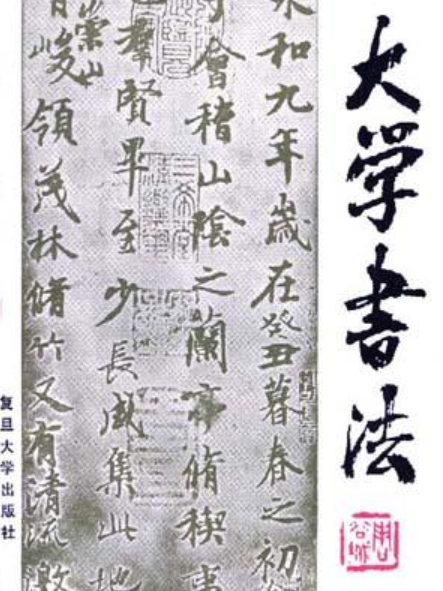 大学书法
永和九年歳在癸丑暮春之初
会稽山陰之蘭亭脩稧事
羣賢畢至少長咸集此地
崇山
峻領茂林脩竹又有清流激
复旦大学出版社